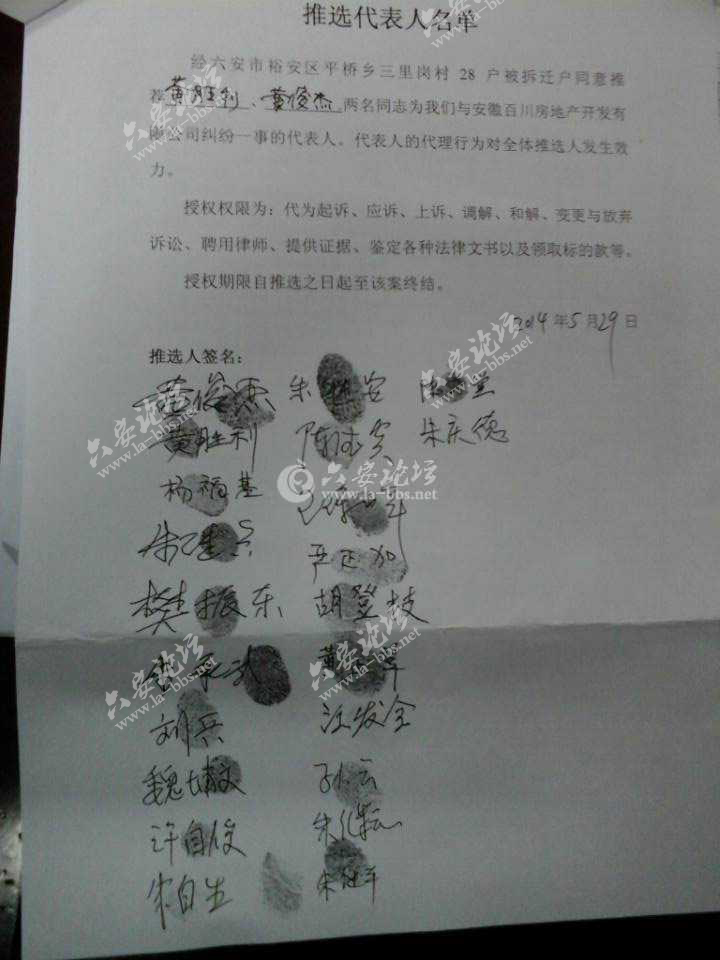 推选代表人名单
经六安市裕安区平桥乡三里岗村 28 户被拆迁户同意推
荐黄胜利、黄俊杰两名同志为我们与安徽百川房地产开发有
限公司纠纷一事的代表人。代表人的代理行为对全体推选人发生效
力。
授权权限为：代为起诉、应诉、上诉、调解、和解、变更与放弃
诉讼、聘用律师、提供证据、鉴定各种法律文书以及领取标的款等。
授权期限自推选之日起至该案终结。
2014年5月29日
推选人签名：
黄俊杰 朱 安
黄胜利 陈 朱庆德
杨福基
朱
樊振东 严正加
胡登枝
黄 军
刘兵 汪发全
魏 文 孙 云
许自俊 朱
朱自生 朱 平
六安论坛
www.la-bbs.net